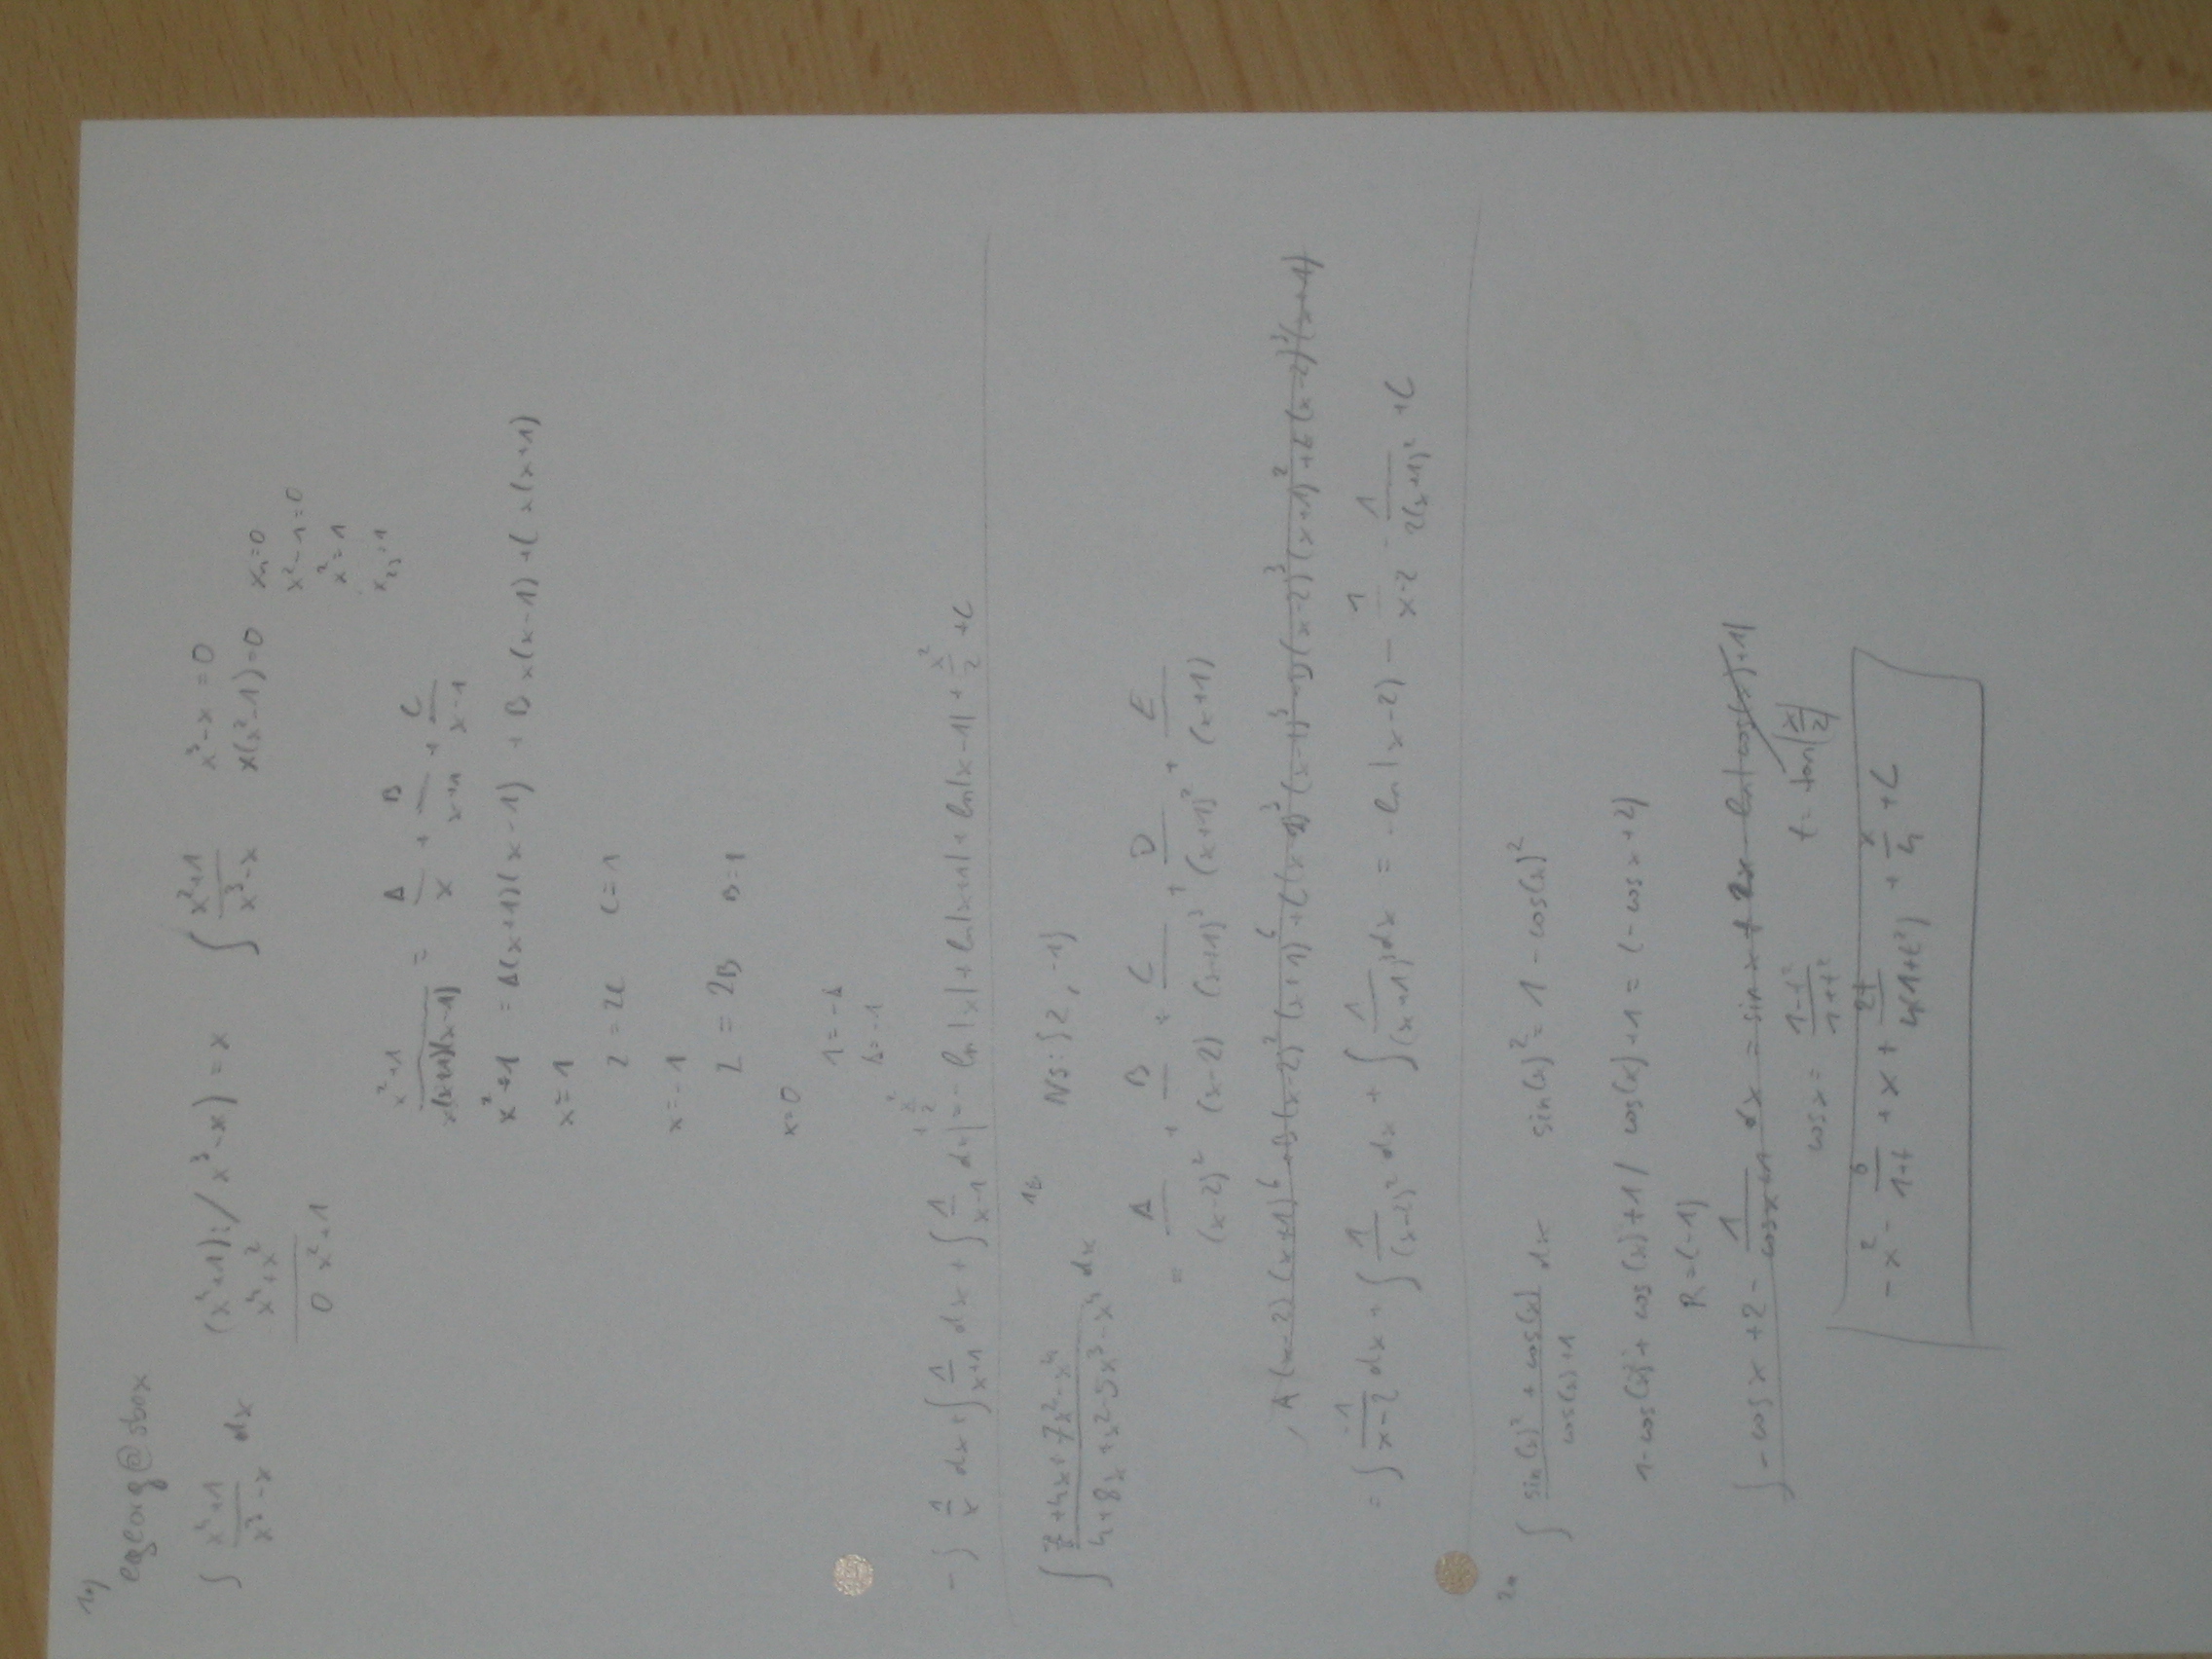 1a)
egeorg@sbox
∫ (x⁴+1)/(x³-x) dx (x⁴+1):/x³-x) = x ∫ (x²+1)/(x³-x) x³-x = 0
x⁴+x² x(x²-1)=0 x₁=0
0 x²+1 x²-1=0
x²=1
(x²+1)/(x(x+1)(x-1)) = A/x + B/(x+1) + C/(x-1)
x²+1 = A(x+1)(x-1) + Bx(x-1) + Cx(x+1)
x=1
2=2C C=1
x=-1
2=2B B=1
x=0
1=-A
-∫ 1/x dx + ∫ 1/(x+1) dx + ∫ 1/(x-1) dx + x²/2 = -ln|x| + ln|x+1| + ln|x-1| + x²/2 + C
1b
4+8x+x²-5x³-x⁴ dx NS:{2,-1}
= A/(x-2)² + B/(x-2) + C/(x+1)³ + D/(x+1)² + E/(x+1)
= ∫ -1/(x-2) dx + ∫ 1/(x-2)² dx + ∫ 1/(x+1)³ dx = -ln|x-2) - 1/(x-2) - 1/(2(x+1)²) + C
2a
∫ (sin(x)² + cos(x))/(cos(x)+1) dx sin(x)² = 1 - cos(x)²
1-cos(x)² + cos(x)+1/ cos(x)+1 = (-cosx+2)
R=(-1)
∫ -cosx + 2 - 1/(cosx+1) dx = sinx + 2x
cosx = (1-t²)/(1+t²) t = tan(x/2)
+ x + 2t/(4(1+t²)) + x/4 + C